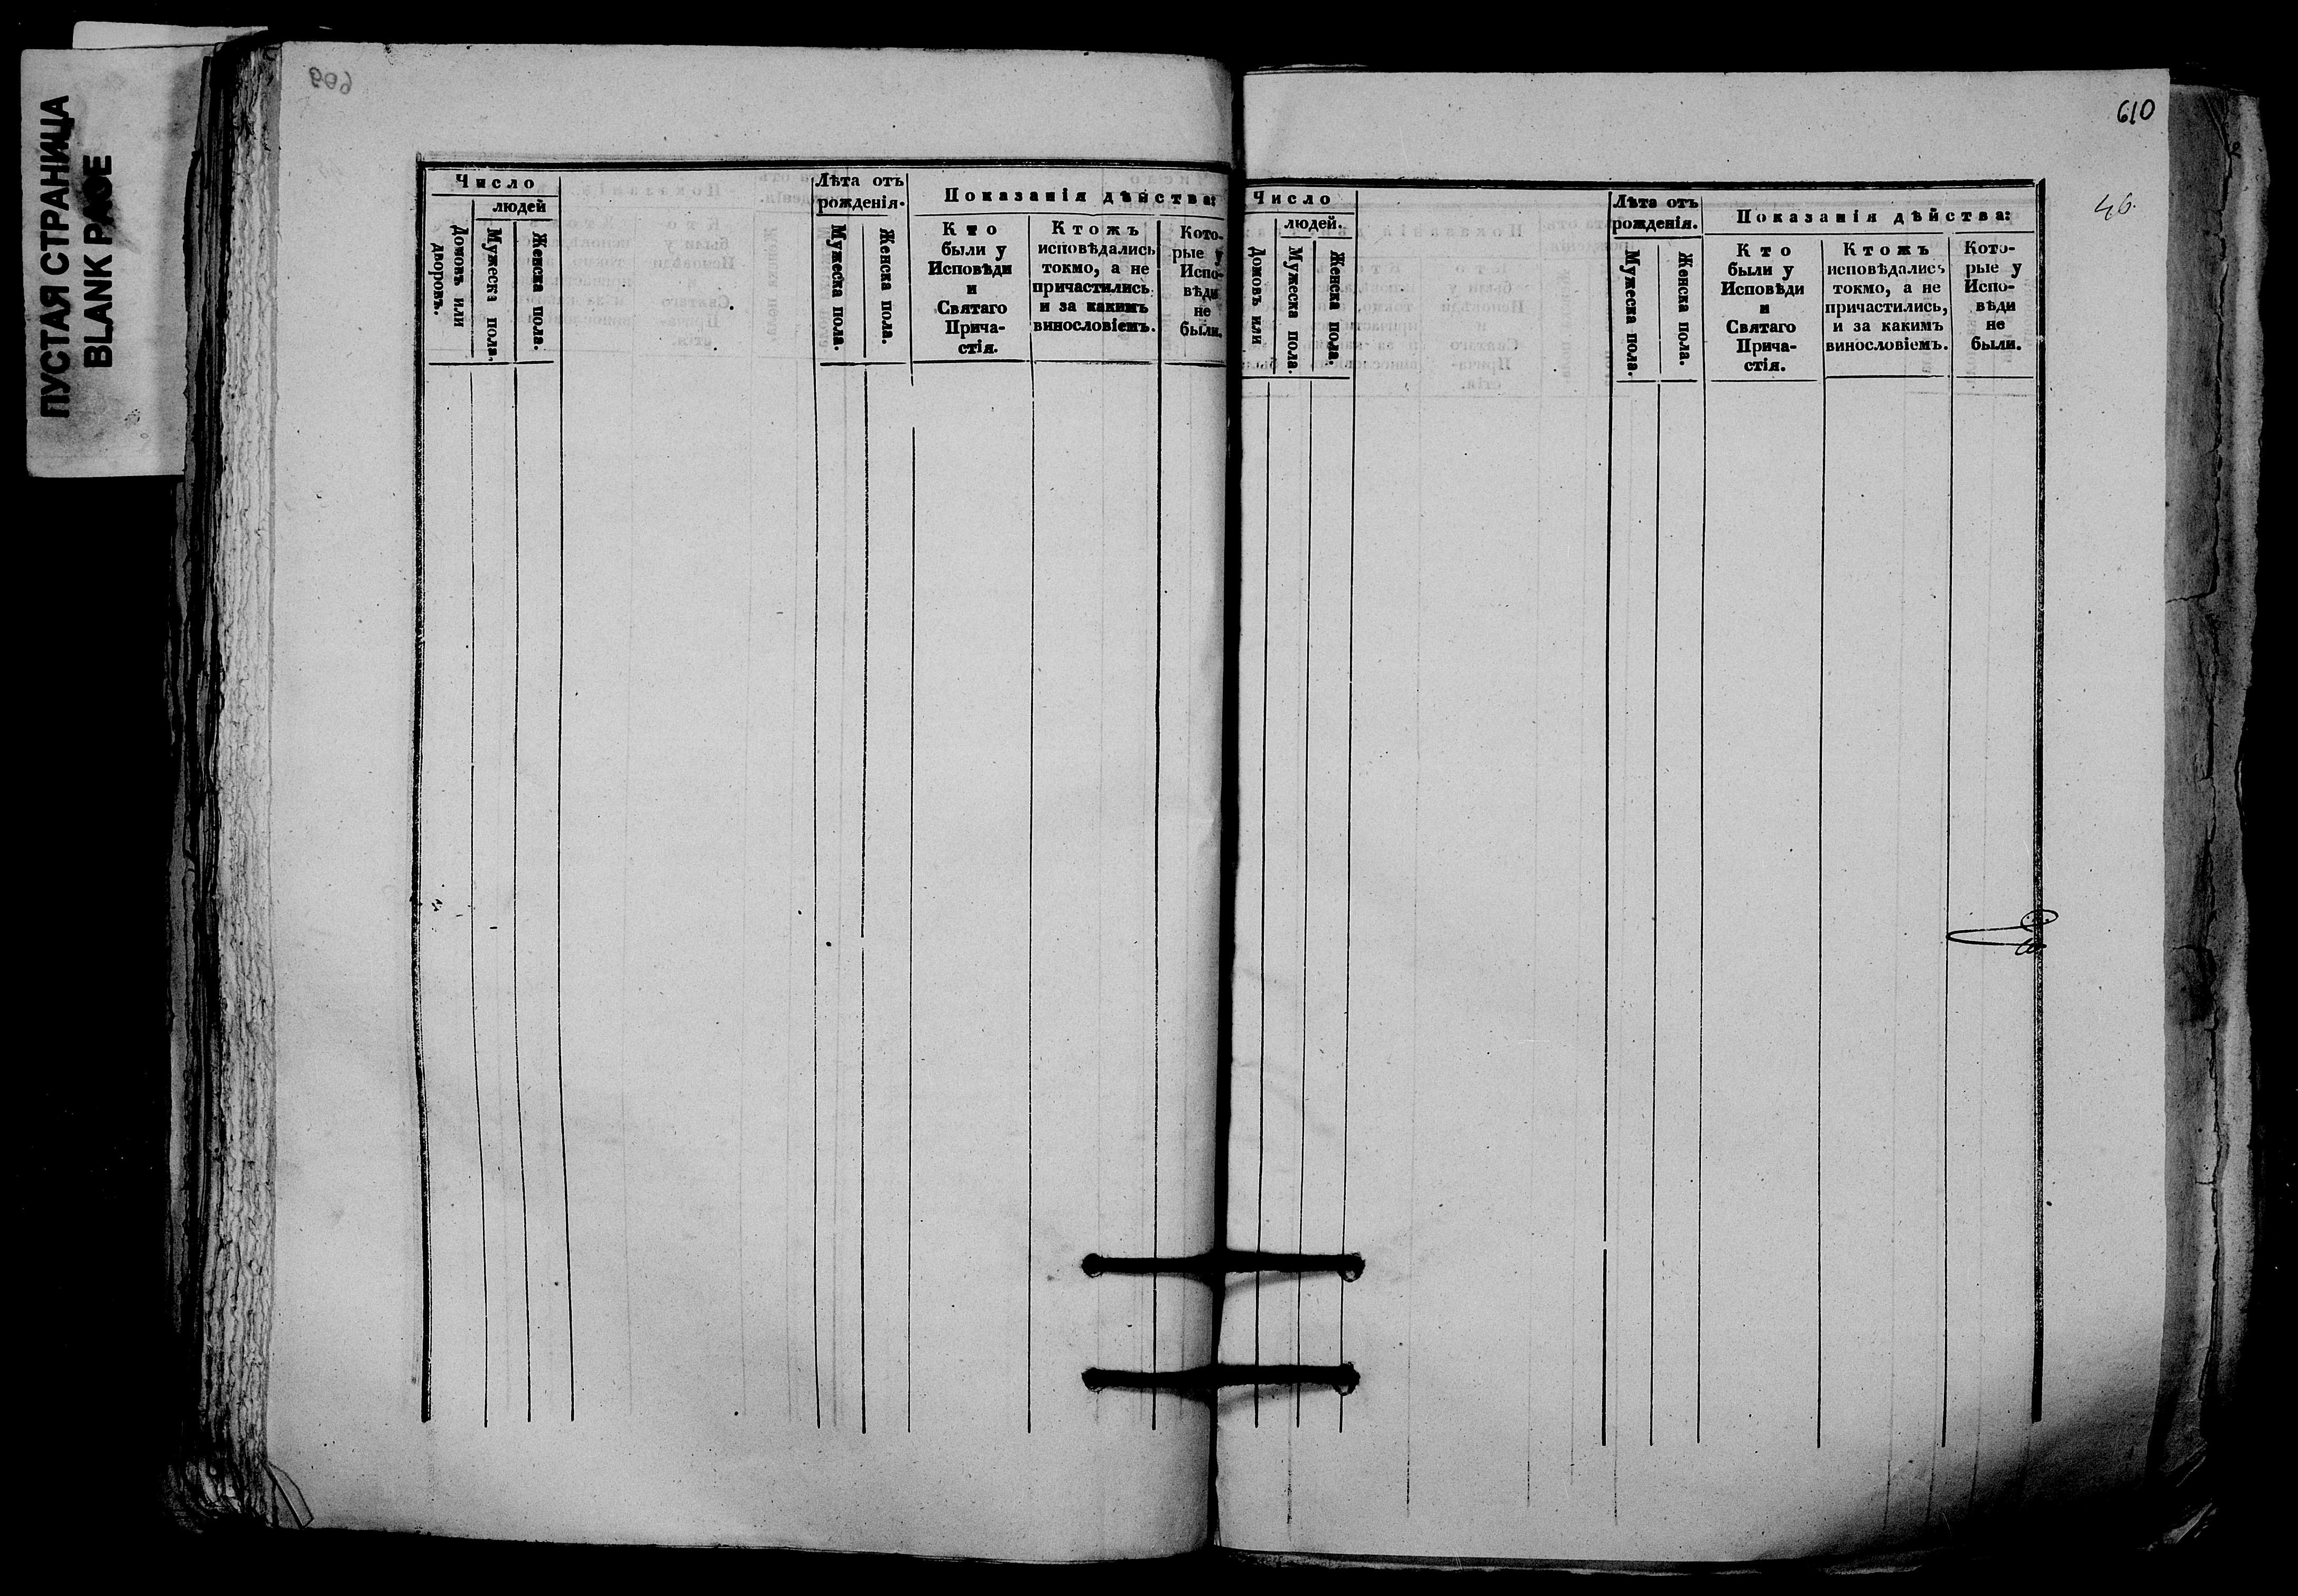 ПУСТАЯ СТРАНИЦА
BLANK PAGE
609
Число
людей
Домовъ или дворовъ.
Мужеска пола.
Женска пола.
Лѣта отъ
рожденія.
Мужеска пола.
Женска пола.
Показанія дѣйства:
Кто
были у
Исповѣди
и
Святаго
Прича-
стія.
Ктожъ
исповѣдались
токмо, а не
причастились
и за какимъ
винословіемъ.
Кото-
рые у
Испо-
вѣди
не
были.
610
46.
Число
людей.
Домовъ или
Мужеска пола.
Женска пола.
Лѣта отъ
рожденія.
Мужеска пола.
Женска пола.
Показанія дѣйства:
Кто
были у
Исповѣди
и
Святаго
Прича-
стія.
Ктожъ
исповѣдались
токмо, а не
причастились,
и за какимъ
винословіемъ.
Кото-
рые у
Испо-
вѣди
не
были.